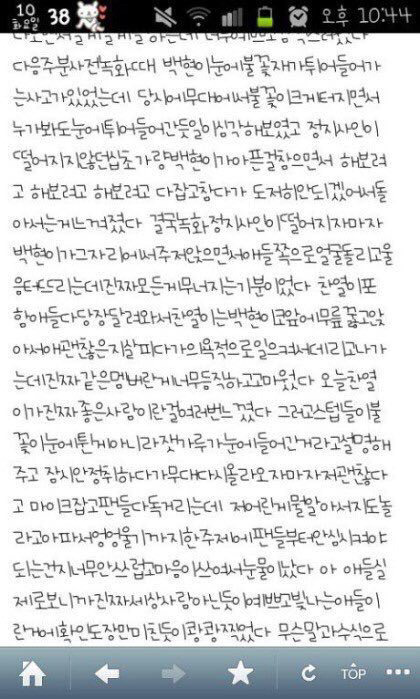 10
화요일
38
오후 10:44
다음주분사전녹화때 백현이눈에불꽃자가튀어들어가
는사고가있었는데 당시에무대에써불꽃이크게터지면서
누가봐도눈에튀어들어간듯일이심각해보였고 정지사인이
떨어지지않던십초가량백현이가아픈걸참으면서 해보려
고 해보려고 해보려고 다잡고참다가 도저히안되겠어서돌
아서는게느껴졌다 결국녹화정지사인이떨어지자마자
백현이가그자리에써주저앉으면서애들쪽으로얼굴돌리고울
음터뜨리는데진짜모든게무너지는기분이었다 찬열이포
함애들다당장달려와서찬열이는백현이코앞에무릎꿇고앉
아서애괜찮은지살피다가의욕적으로일으켜서데리고나가
는데진짜같은멤버란게너무듬직하고고마웠다 오늘찬열
이가진짜좋은사람이란걸여러번느꼈다 그러고스텝들이불
꽃이눈에튄게아니라잿가루가눈에들어간거라고설명해
주고 잠시안정취하다가무대다시올라오자마자저괜찮다
고 마이크잡고팬들다독거리는데 저어린게뭘알아서지도놀
라고아파서엉엉울기까지한주제에팬들부터안심시켜야
되는건지너무안쓰럽고마음이쓰여서눈물이났다 아 애들실
제로보니까진짜세상사람아닌듯이예쁘고빛나는애들이
란게확인도장만미친듯이쾅쾅찍었다 무슨말과수식으로
TOP